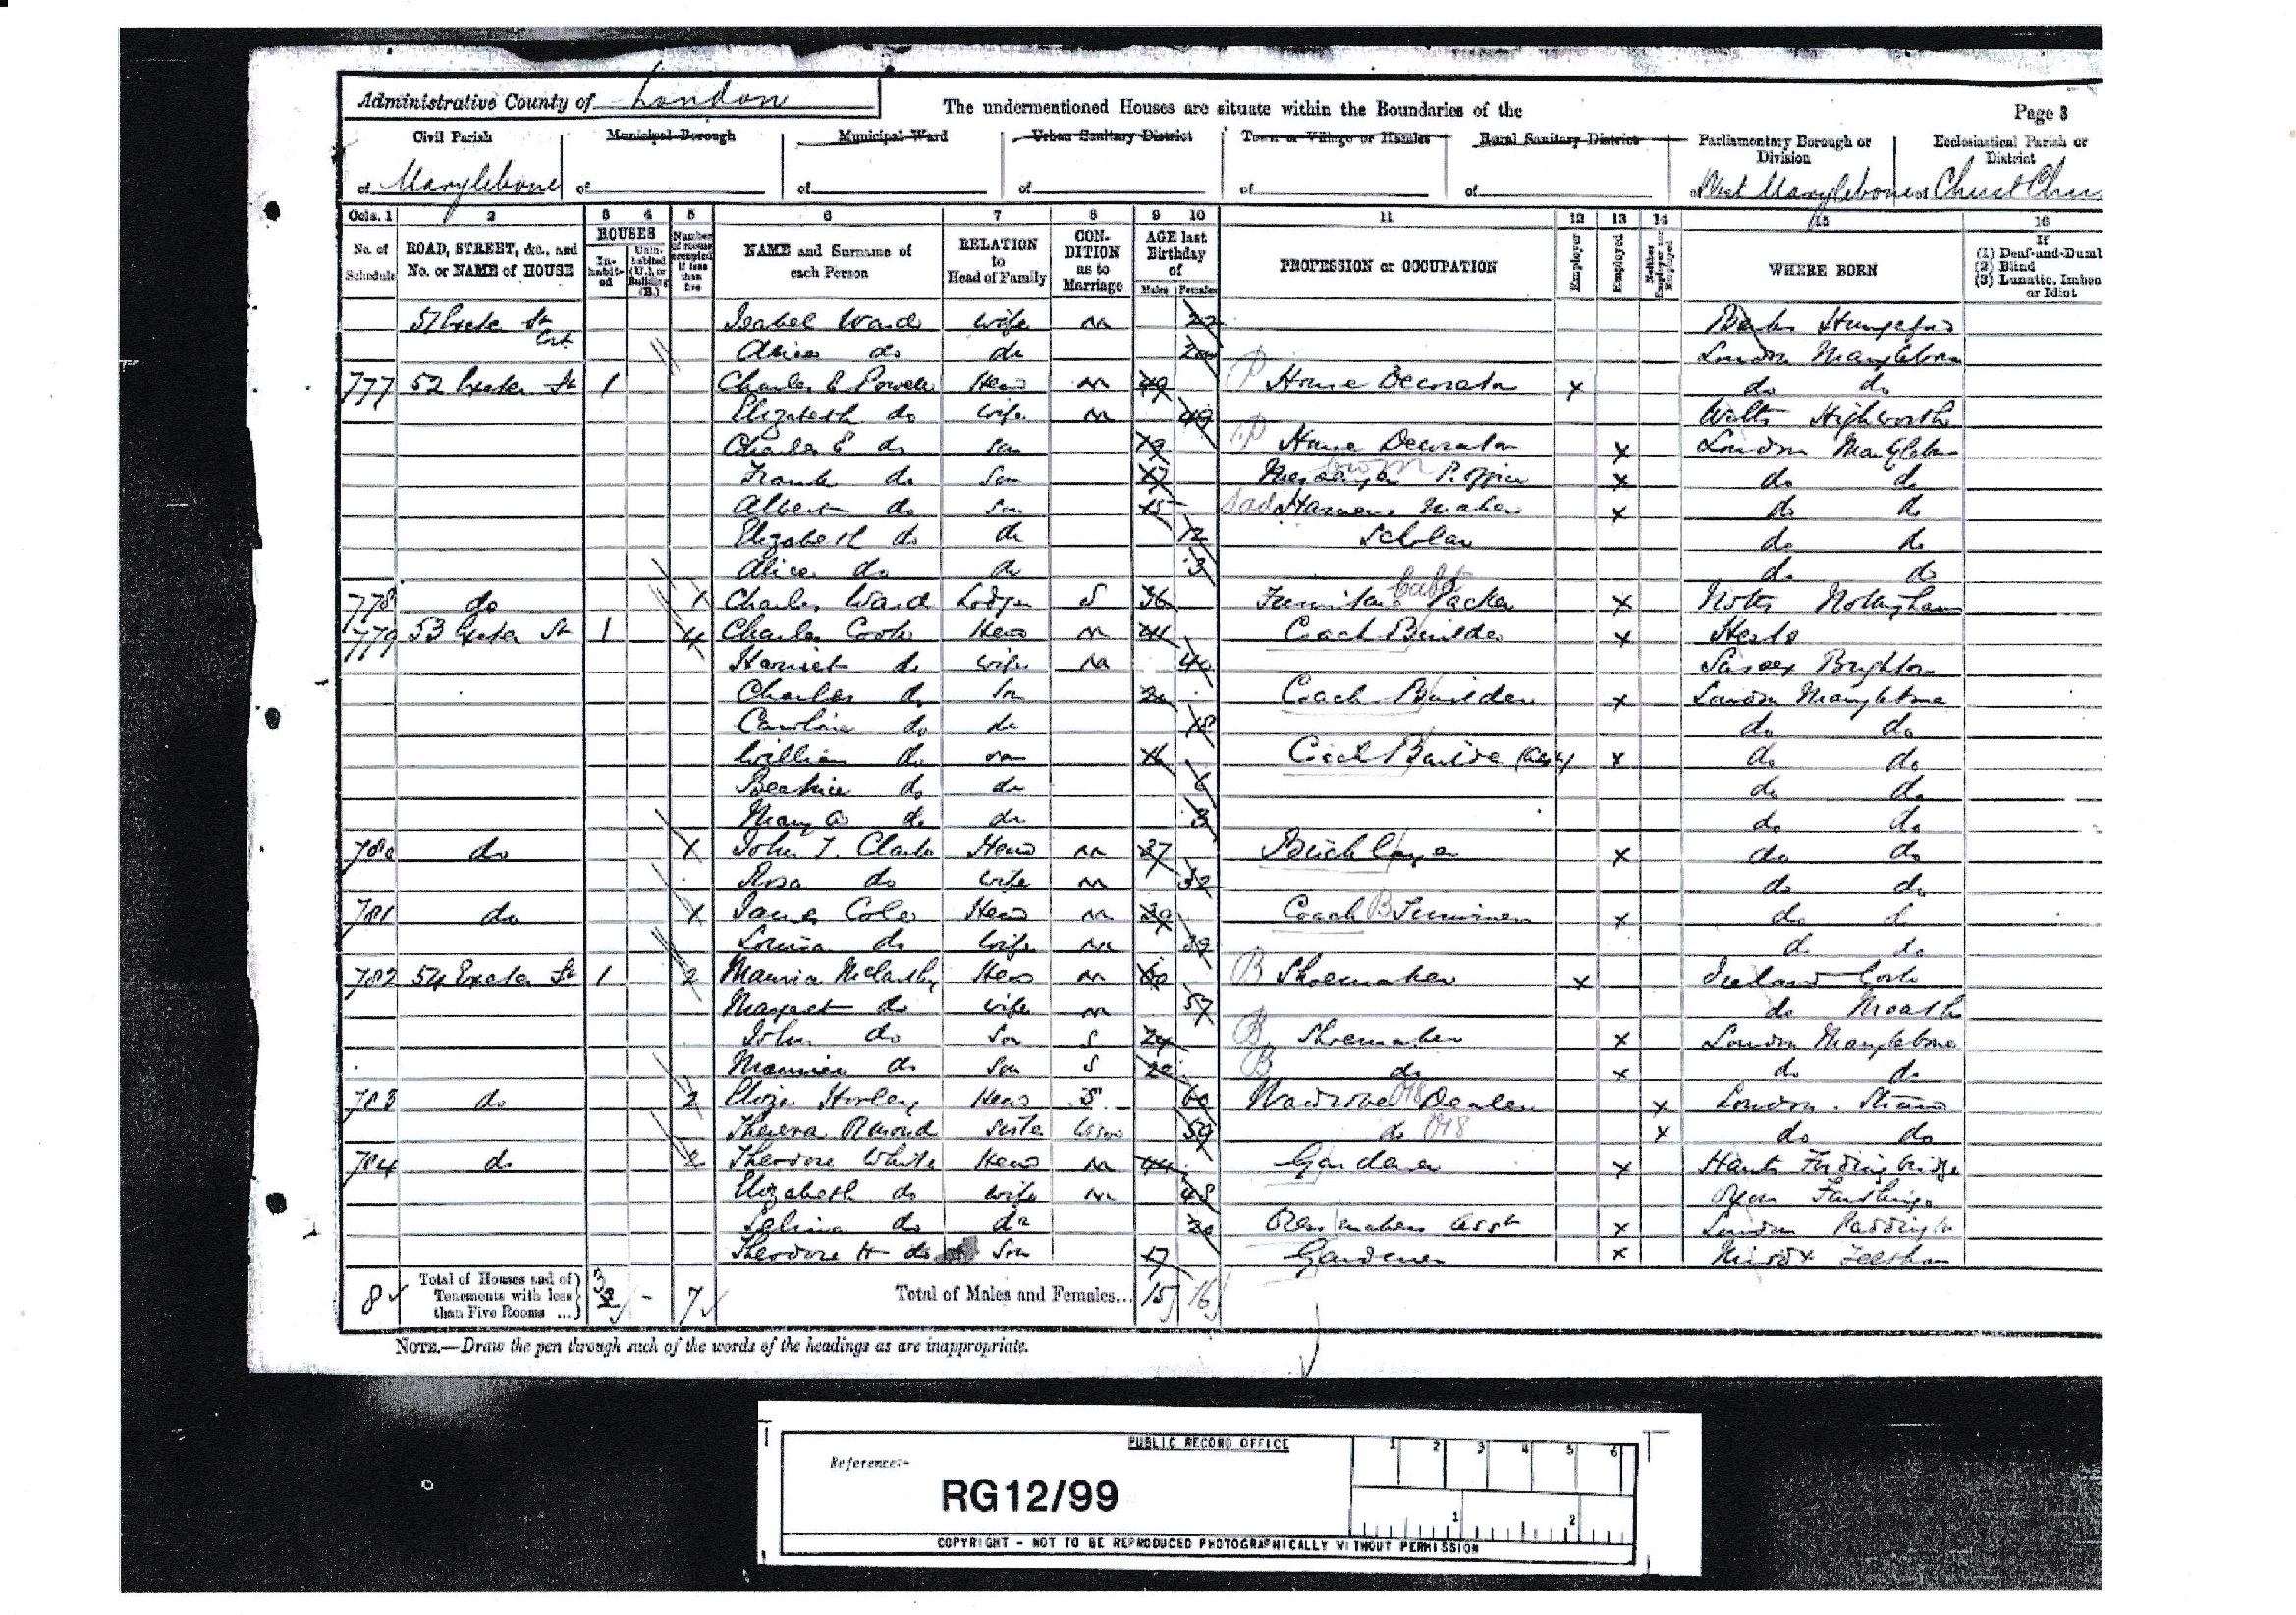 Administrative County of London
The undermentioned Houses are situate within the Boundaries of the
Page 3
Civil Parish
Municipal Borough
Municipal Ward
Urban Sanitary District
Town or Village or Hamlet
Rural Sanitary District
Parliamentary Borough or Division
Ecclesiastical Parish or District
of Marylebone of of of of of of West Marylebone of Christ Chu
Cols. 1 2 3 4 5 6 7 8 9 10 11 12 13 14 15 16
No. of Schedule
ROAD, STREET, &c., and No. or NAME of HOUSE
HOUSES
In-habit-ed
Unin-habited (U.), or Building (B.)
Number of rooms occupied if less than five
NAME and Surname of each Person
RELATION to Head of Family
CON-DITION as to Marriage
AGE last Birthday of
Males Females
PROFESSION or OCCUPATION
Employer
Employed
Neither Employer nor Employed
WHERE BORN
If
(1) Deaf-and-Dumb
(2) Blind
(3) Lunatic, Imbec
or Idiot
51 Exeter St Isabel Ward wife m 22 Berks Hungerford
Cont
Alice do da London Marylebone
777 52 Exeter St 1 Charles E Powell Head m 49 House Decorator x do do
Elizabeth do wife m 49 Wilts Highworth
Charles E do son 19 House Decorator x London Marylebone
Frank do Son 17 Messenger P. Office x do do
Albert do Son 15 Harness Maker x do do
Elizabeth do da 12 Scholar do do
Alice do da 3 do do
778 do 1 Charles Ward Lodger S 36 Furniture Packer x Notts Nottingham
779 53 Exeter St 1 4 Charles Cook Head m 44 Coach Builder x Herts
Harriet do wife m 40 Sussex Brighton
Charles do Son 20 Coach Builder x London Marylebone
Caroline do da 18 do do
William do son 16 Coach Builder x do do
Beatrice do da 6 do do
Mary A do da 3 do do
780 do 1 John T. Clark Head m 37 Bricklayer x do do
Rosa do wife m 32 do do
781 do 1 James Cole Head m 39 Coach Trimmer x do do
Louisa do wife m 39 do do
782 54 Exeter St 1 2 Maurice McCarthy Head m 60 B Shoemaker x Ireland Cork
Margaret do wife m 57 do Meath
John do Son S 24 B Shoemaker x London Marylebone
Maurice do Son S 20 B do x do do
783 do 2 Eliza Horley Head S 60 Wardrobe Dealer x London Strand
Theresa sister Widow 54 do x do do
784 do 2 Theodore White Head m 44 Gardener x Hants Fordingbridge
Elizabeth do wife m 48 Oxon
Selina do da 20 Dressmakers Asst x London Paddington
Theodore H do Son 17 Gardener x Middx Feltham
8 Total of Houses and of Tenements with less than Five Rooms ... 3 - 7 Total of Males and Females... 15 16
NOTE.—Draw the pen through such of the words of the headings as are inappropriate.
PUBLIC RECORD OFFICE
1 2 3 4 5 6
Reference:-
RG12/99
1 2
COPYRIGHT - NOT TO BE REPRODUCED PHOTOGRAPHICALLY WITHOUT PERMISSION